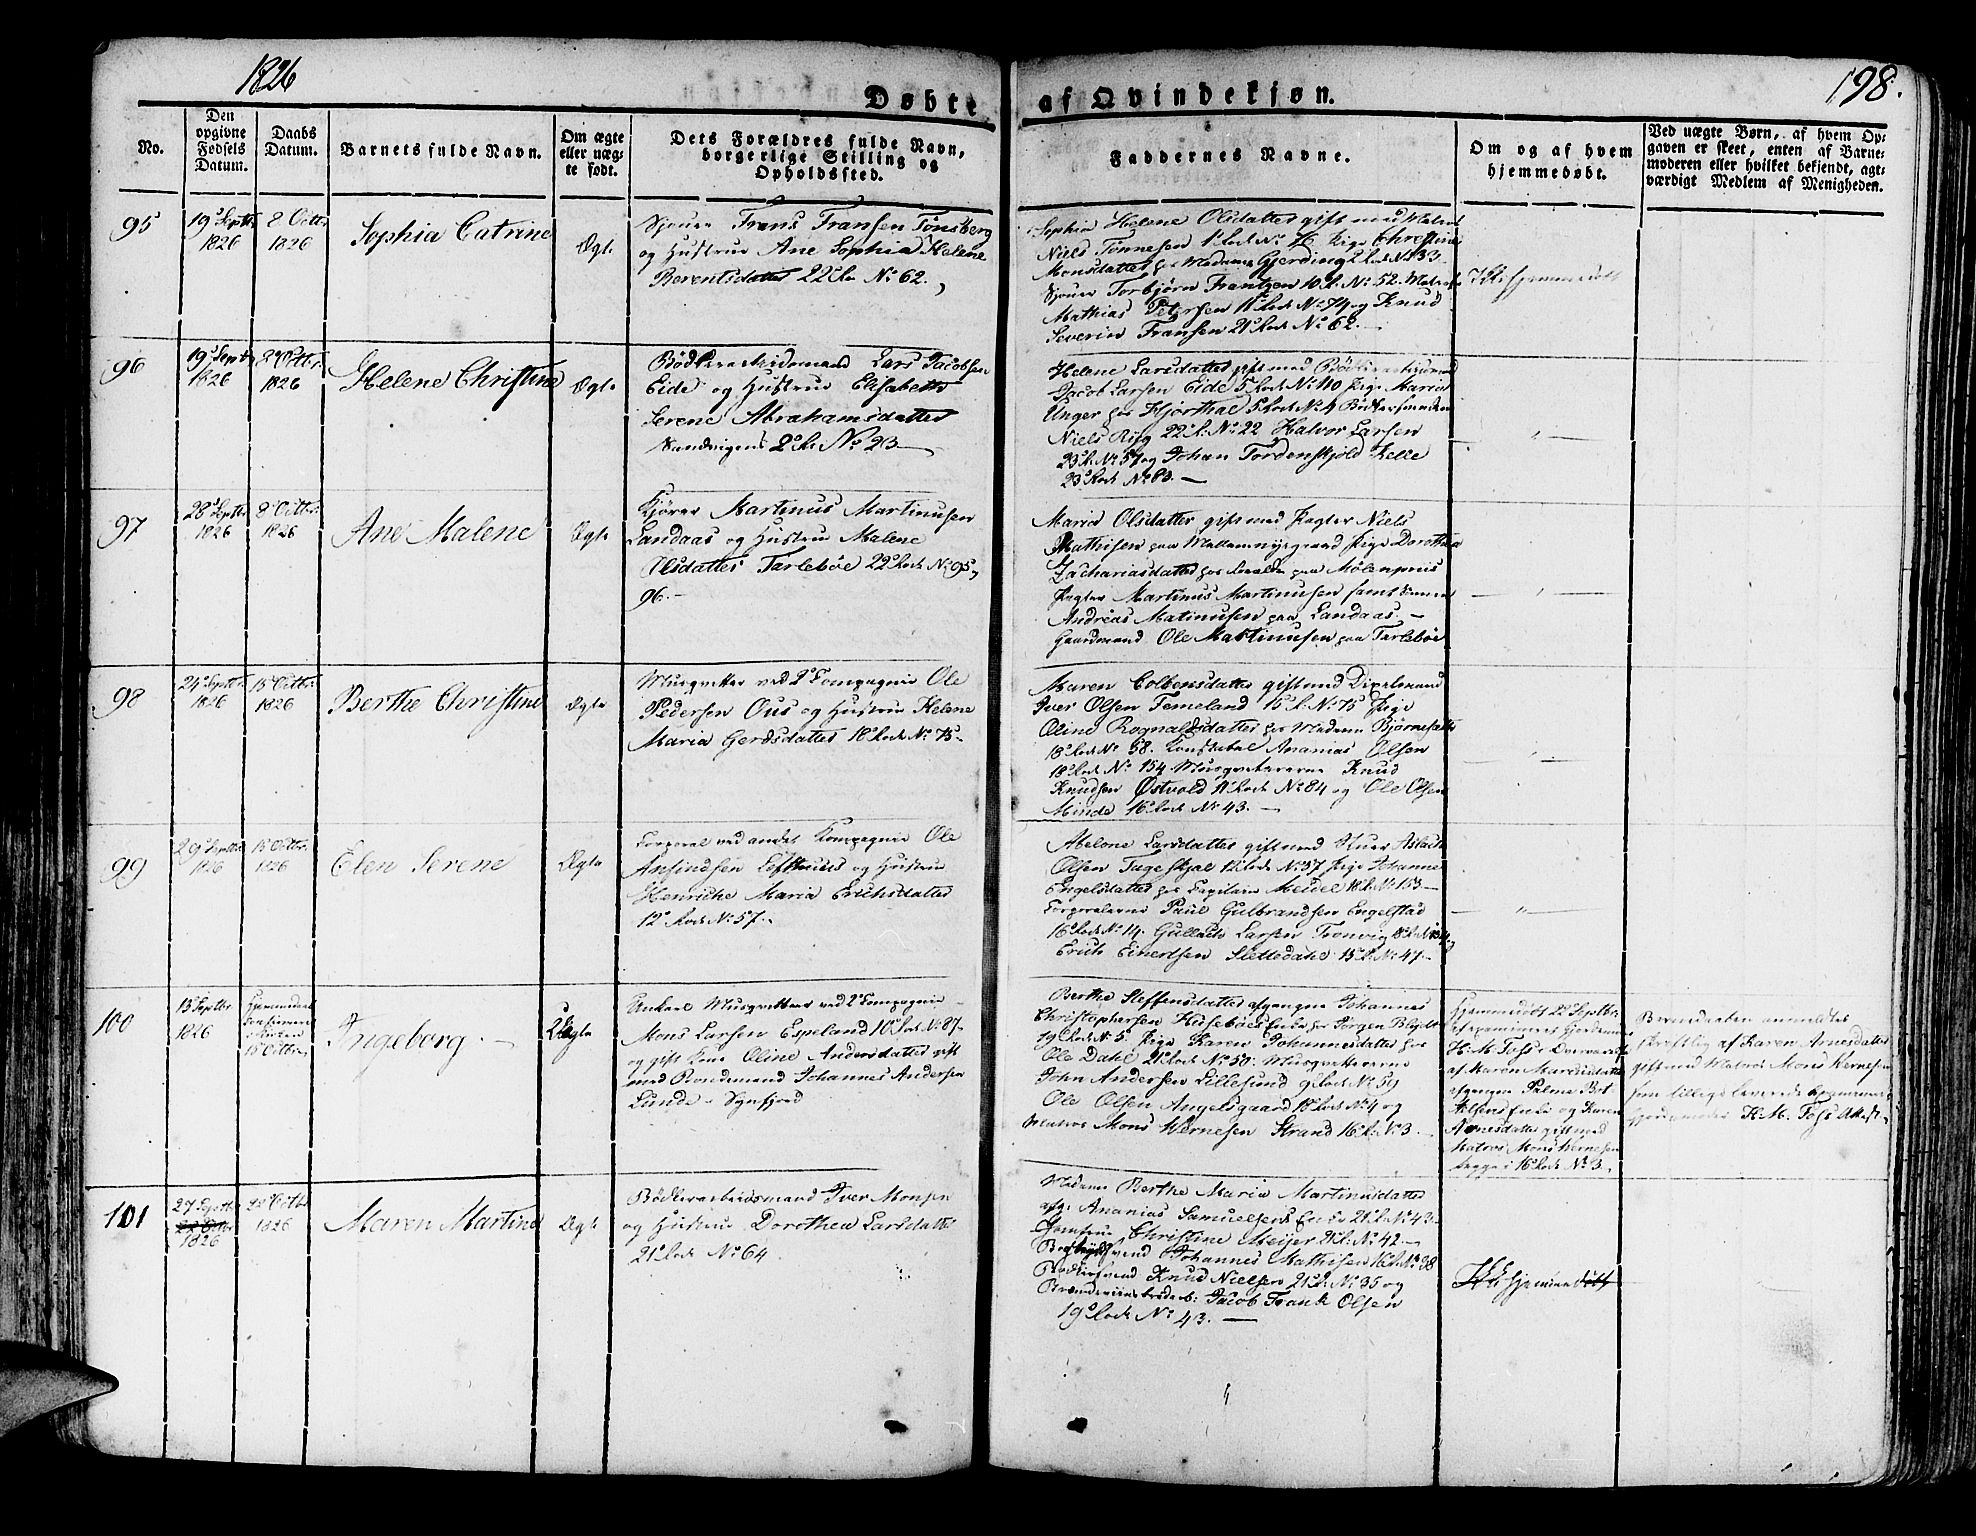 1826
198.
Døbte af Qvindekjøn.
No.
Den opgivne Fødsels Datum.
Daabs Datum.
Barnets fulde Navn.
Om ægte eller uægte født.
Dets Forældres fulde Navn, borgerlige Stilling og Opholdssted.
Faddernes Navne.
Om og af hvem hjemmedøbt.
Ved uægte Børn, af hvem Opgaven er skeet, enten af Barnemoderen eller hvilket bekjendt, agtværdigt Medlem af Menigheden.
95
19 Septbr
1826
8 Octbr
1826
Sophia Catrine
Ægte
Sjouer Frans Fransen Tønsberg
og Hustrue Ane Sophia Helene
Berentsdatter 22 Ro No 62.
Sophia Helene Olsdatter gift med Matros
Niels Tønnesen
Pige Christine
Monsdatter hos Madame Gjerding 2 Rode No 33
Sjouer Torbjørn Frantzen 10 R. No 52. Matros
Mathias Petersen 11 Rode No 74 og Knud
Severin Fransen 21 Rode No 62.
Ikke hjemmedøbt
96
19 Septbr
1826
1826
Helene Christine
Ægte
Bødkerarbeidsmand Lars Jacobsen
Eide og Hustrue Elisabeth
Serene Abrahamsdatter
Sandvigens 2 Ro No 23
Helene Larsdatter gift med
Jacob Larsen Eide 5 Rode No 110 Pige Maria
Unger hos Hjorthal 5 Rode No 4 Bødkersvendene
Niels Riisg 22 R. No 22 Halvor Larsen
23 R. No 57 og Johan Tordenskjold Kelle
23 Rode No 83.
"
97
28 Septbr
1826
8 Octbr
1826
Ane Malene
Ægte
Kjører Martinus Martinusen
Landaas og Hustrue Malene
Olsdatter Tarlebøe 22 Rode No 95,
96.
Maria Olsdatter gift med Pagter Niels
Mathisen paa
Pige Dorothea
Zachariasdatter hos Forældre paa Mølenpriis
Pagter Martinus Martinusen samt Sønnen
Andreas Matinusen paa Landaas.
Gaardmand Ole Martinusen paa Tarlebøe
"
98
24 Septbr
1826
15 Octbr
1826
Berthe Christine
Ægte
Musqvetter ved 2 Compagnie Ole
Pedersen Ous og Hustrue Helene
Maria Gerdsdatter 18 Rode No 75
Maren Colbensdatter gift med
Iver Olsen Femeland 15 R. No 75 Pige
Oline Rognaldsdatter hos Madame
18 Rode No 58. Konstabel Ananias Olsen
18 Rode No 154 Musqvetererne Knud
Knudsen Østvold 11 Rode No 84 og Ole Olsen
Minde 16 Rode No 43.
"
99
29 Septbr
1826
15 Octbr
1826
Elen Serene
Ægte
Corporal ved andet Kompagnie Ole
Ansindsen Lofthuus og Hustrue
Henriche Maria Erichsdatter
12 Rode No 57.
Abelone Larsdatter gift med Sjouer Aslach
Olsen Tageskjæl 12 Rode No 37 Pige Johanne
Engelsdatter hos Capitain Meidel 18 R. No 153
Corporalerne Paul Gulbrandsen Engelstad
16 Rode No 14. Gullach Larsen Tronvig
Erich Einertsen Slettedahl 15 R. No 47.
"
100
13 Septbr
1826
Hjemmedøbt
15 Octbr
Ingeborg.
Uægte
Unkarl Musqvetteer ved 2 Compagnie
Mons Larsen Espeland 10 Rode No 87
og gift Kone Oline Andersdatter gift
med Bondemand Johannes Andersen
Lunde. Synfjord
Berthe Steffensdatter afgangne Johannes
Christophersen Husebøes Enke hos Jørgen
19 Rode No 5 Pige Karen Johannesdatter hos
Ole Dahl 21 Rode No 50. Musqvetererne
John Andersen Lillesund 9 Rode No 59
Ole Olsen Angelsgaard 15 Rode No 4 og
Matros Mons Wernesen Strand 16 R. No 3.
Hjemmedøbt 22 Septbr
H. M. Foss
af Maren Mardisdatter
afgangne Palme Bot
Enke og Karen
Arnesdatter gift med
Matros Mons Wernesen
16 Rode No 3.
Barnedaaben anmeldet
skriftlig af Karen Arnesdatter
gift med Matros Mons Wernesen
som tillige leverede
H. M. Foss Attest
101
27 Septbr
22 Octbr
1826
22 Octbr
1826
Maren Martine
Ægte
Bødkerarbeidsmand Iver Monsen
og Hustrue Dorothea Larsdatter
21 Rode No 64
Madame Berthe Maria Martinusdatter
afg. Ananias Samuelsens Enke 21 R. No 43.
Jomfrue Christine Meijer 21 R. No 42.
Johannes Mathisen 16 R. No 38
Bødkersvend Knud Nielsen 21 R. No 35 og
Jacob Frank Olsen
19 Rode No 43.
Ikke hjemmedøbt